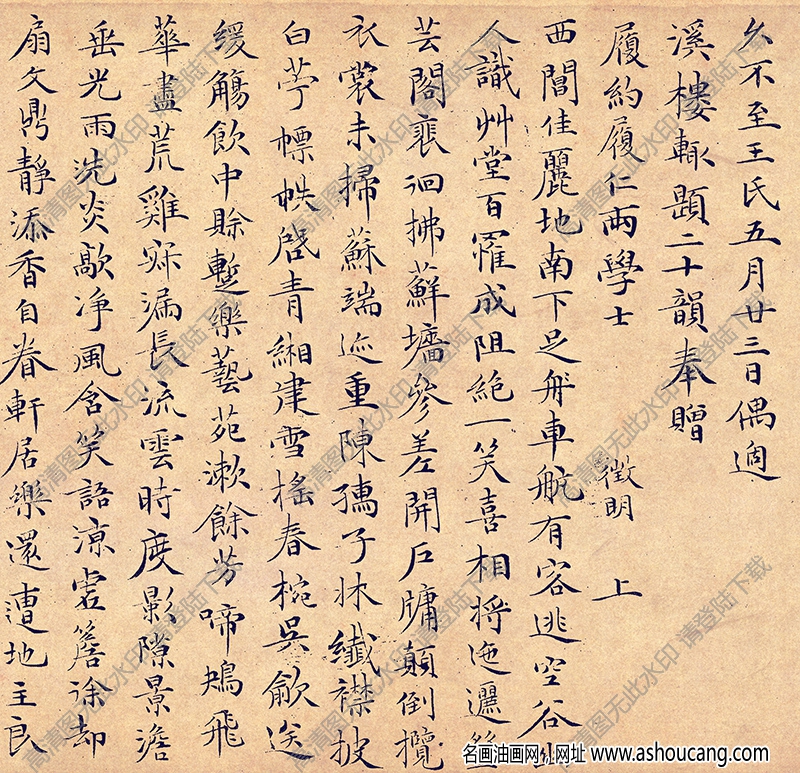 久不至王氏五月廿三日偶過
溪樓輒題二十韻奉贈
履約履仁兩學士
徵明 上
西閶佳麗地南下足舟車航有客逃空谷
人識艸堂百罹成阻絕一笑喜相將迤邐
芸閣裵徊拂蘚墻參差開戶牖顛倒攬
衣裳未掃蘇端迹重陳孺子牀纖襟披
白苧幖帙啓青緗建雪搖春椀吳歈送
緩觴飲中賖蹔樂藝苑漱餘芳啼鴂飛
華盡荒雞寐漏長流雲時度影隙景澹
垂光雨洗炎歊淨風含笑語涼虛簷徐却
扇文鼎靜添香自眷軒居樂還遭地主良
高清图无此水印 请登陆下载
名画油画网 网址 www.ashoucang.com